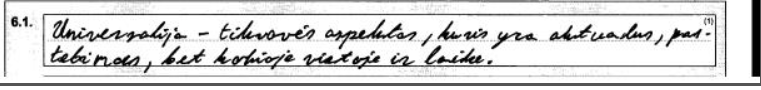 6.1. Universalija - tikrovės aspektas, kuris yra aktualus, pas- (1)
tebimas, bet kokioje vietoje ir laike.